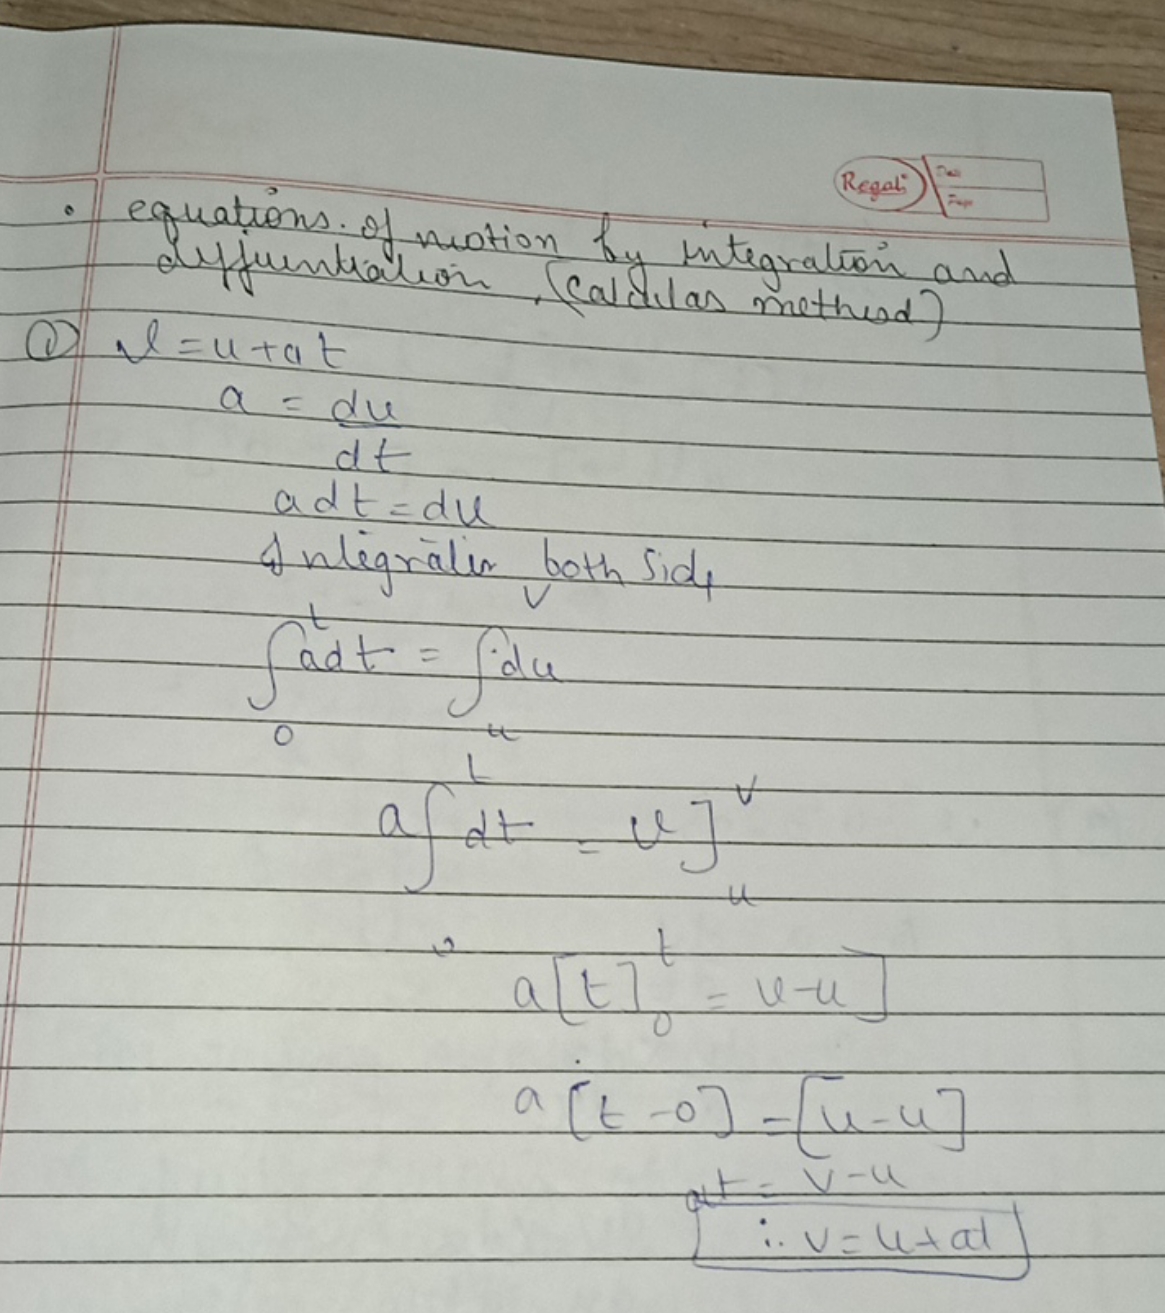 Regal
Date
Page
• equations. of motion by integration and
differentiation. (Calculas method)
① v = u + at
a = du
dt
adt = du
Integratin both Side
t v
∫adt = ∫du
0 u
t
a∫dt = v]
v
u
0
a[t] = v-u]
t
0
a[t-0] = [u-u]
at = v-u
∴ v = u+at